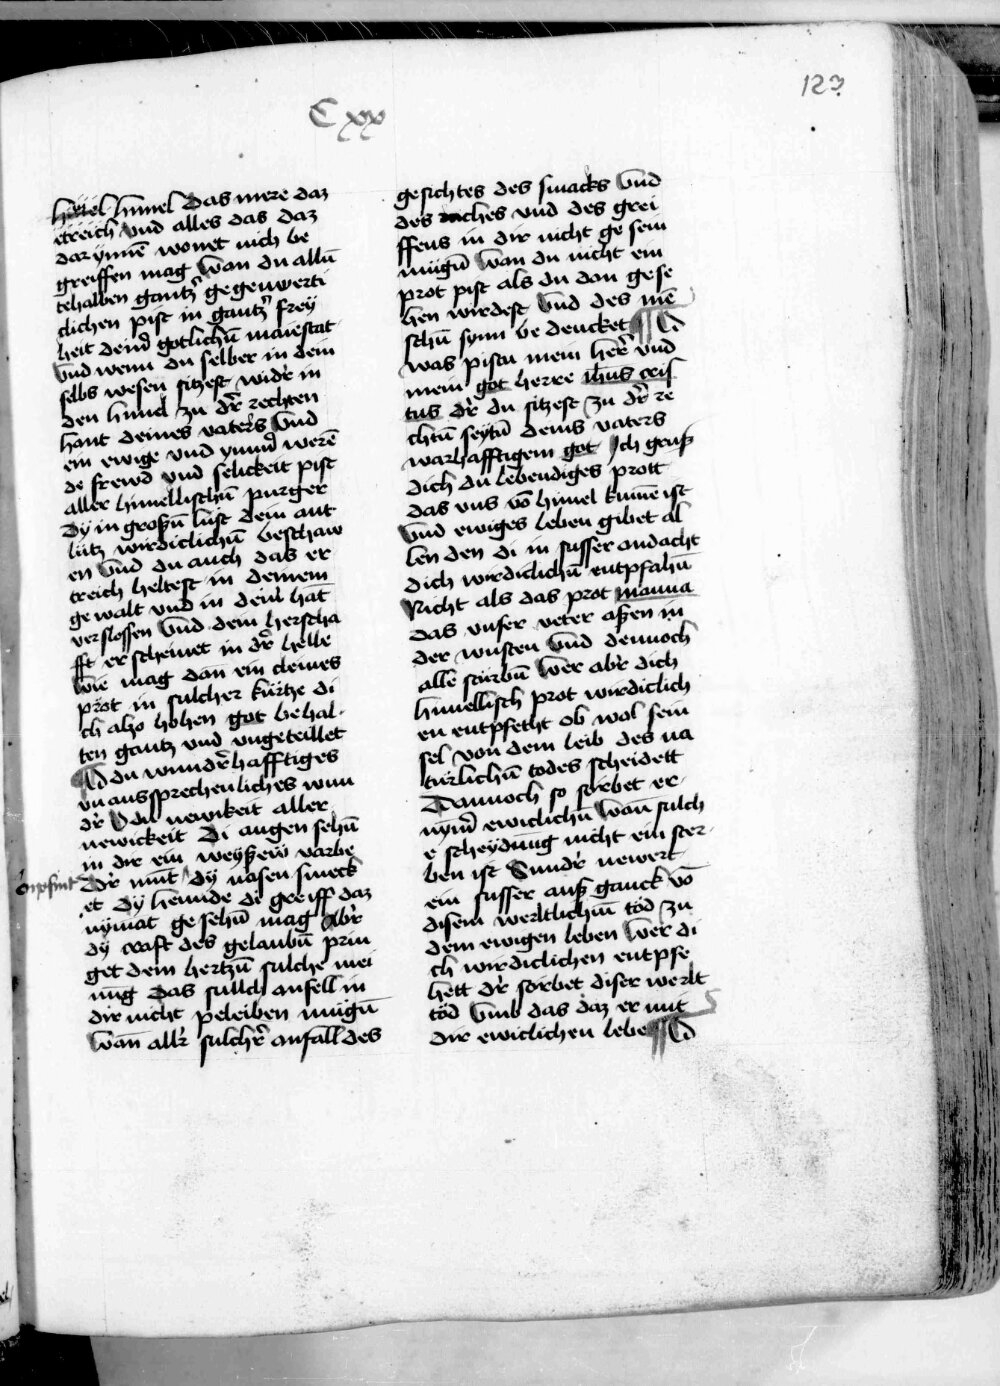 123
Cxx
himel Das mere daz
etreich Vnd alles das daz
dar ynnē wonet nich be
greiffen mag Wan du allū
tehalben gantzr̄ gegenwerti
clichen pist in gantzr̄ frey
heit deinr̄ gotlichū maiestat
Vnd wenn du selber in dein
selbs wesen sitzest widr̄ in
den himel zu dr̄ rechten
hant deines vaters Vnd
ein ewige vnd ymmr̄ werē
de frewd vnd selickeit pist
aller himellischū purger
Dy in großū lust dein ant
lütz wirdiclichū beschaw
en Vnd du auch das er
treich heltest in deinem
gewalt vnd in dein hāt
verslossen Vnd dein herscha
fft erscheinet in dr̄ helle
Wie mag dan ein cleines
prot in sulcher kürtze di
ch also hohen got behal
ten gantz vnd vngeteillet
O du wundr̄hafftiges
vnaussprechenliches wun
dr̄ Von newikeit aller
newickeit Di augen sehū
in dir ein weyßew varbe
Dr̄ munt dy nasen smeck
et Dy hennde di greiff daz
nymāt gesehū mag Abr̄
dy craft des gelaubū prin
get dem hertzū sulche mei
nūg Das sullch anfell in
dir nicht peleiben mügū
Wān allr̄ sulchr̄ anfall des
gesichtes des smacks Vnd
des raches vnd des grei
ffens in dir nicht ge sein
mügū Wan du nicht ein
prot pist als du dan gese
hen wirdest Vnd des mē
schū synn be deucket O
was pistu mein herr̄ vnd
mein got herre ihūs cris
tus dr̄ du sitzest zu dr̄ re
chtū seytū deins vaters
warhafftigem got Ich gruß
dich du lebendiges prott
das vns vō himel kumē ist
Vnd ewiges leben gibet al
len den di in susser andacht
dich wirdiclichū entpfahū
Nicht als das prot manna
das vnser veter aßen in
der wusten Vnd dennoch
alle sturbū Wer abr̄ dich
himellisch prot wirdiclich
en entpfecht ob wol sein
sel von dem leib des na
türlichū todes scheidett
Dannoch so stirbet er
nymr̄ ewiclichū Wan sulch
e scheydūng nicht ein ster
ben ist Sundr̄ newert
ein susser auß ganck vō
disem werltlichū tod zu
dem ewigen leben Wer di
ch wirdiclichen entpfe
hett dr̄ stirbet diser werlt
tod Vmb das daz er mit
dir ewiclichen lebe O